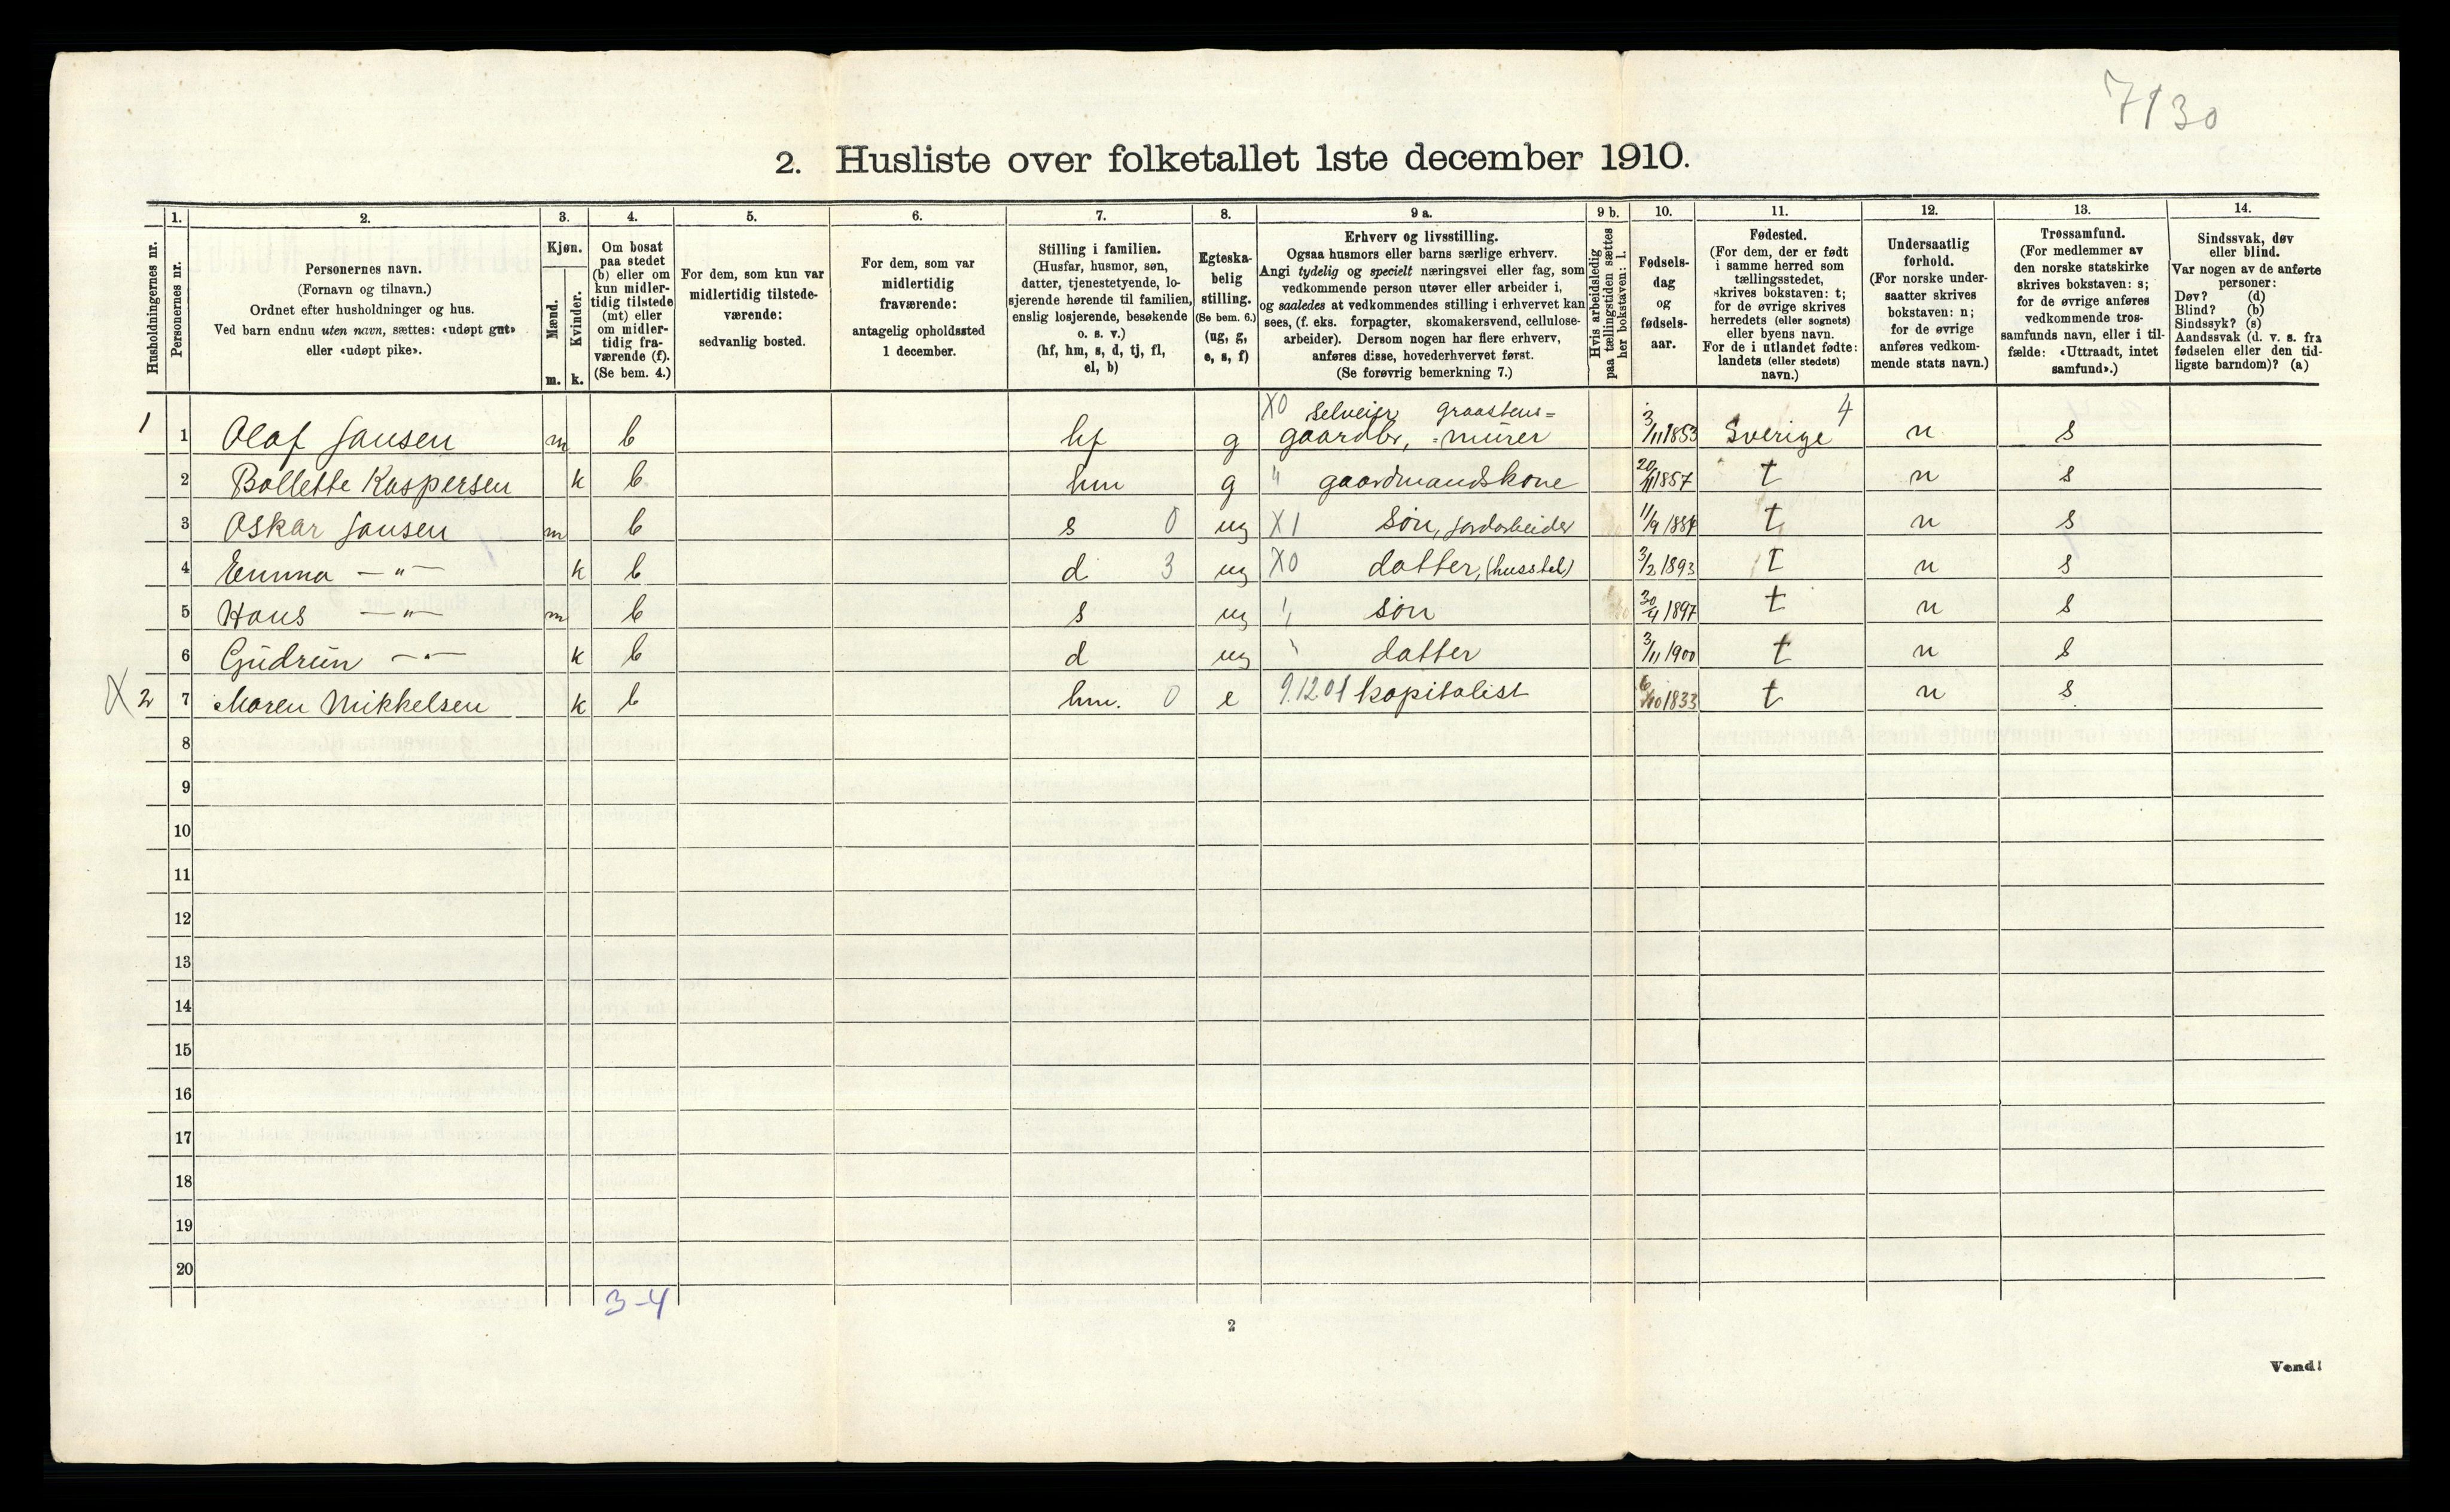 7130
2. Husliste over folketallet 1ste december 1910.
Husholdningernes nr.
1.
Personernes nr.
2.
Personernes navn.
(Fornavn og tilnavn.)
Ordnet efter husholdninger og hus.
Ved barn endnu uten navn, sættes: «udøpt gut»
eller «udøpt pike».
3.
Kjøn.
Mænd.
Kvinder.
m. k.
4.
Om bosat
paa stedet
(b) eller om
kun midler-
tidig tilstede
(mt) eller
om midler-
tidig fra-
værende (f).
(Se bem. 4.)
5.
For dem, som kun var
midlertidig tilstede-
værende:
sedvanlig bosted.
6.
For dem, som var
midlertidig
fraværende:
antagelig opholdssted
1 december.
7.
Stilling i familien.
(Husfar, husmor, søn,
datter, tjenestetyende, lo-
sjerende hørende til familien,
enslig losjerende, besøkende
o. s. v.)
(hf, hm, s, d, tj, fl,
el, b)
8.
Egteska-
belig
stilling.
(Se bem. 6.)
(ug, g,
e, s, f)
9 a.
Erhverv og livsstilling.
Ogsaa husmors eller barns særlige erhverv.
Angi tydelig og specielt næringsvei eller fag, som
vedkommende person utøver eller arbeider i,
og saaledes at vedkommendes stilling i erhvervet kan
sees, (f. eks. forpagter, skomakersvend, cellulose-
arbeider). Dersom nogen har flere erhverv,
anføres disse, hovederhvervet først.
(Se forøvrig bemerkning 7.)
9 b.
Hvis arbeidsledig
paa tællingstiden sættes
her bokstaven: l.
10.
Fødsels-
dag
og
fødsels-
aar.
11.
Fødested.
(For dem, der er født
i samme herred som
tællingsstedet,
skrives bokstaven: t;
for de øvrige skrives
herredets (eller sognets)
eller byens navn.
For de i utlandet fødte:
landets (eller stedets)
navn.)
12.
Undersaatlig
forhold.
(For norske under-
saatter skrives
bokstaven: n;
for de øvrige
anføres vedkom-
mende stats navn.)
13.
Trossamfund.
(For medlemmer av
den norske statskirke
skrives bokstaven: s;
for de øvrige anføres
vedkommende tros-
samfunds navn, eller i til-
fælde: «Uttraadt, intet
samfund».)
14.
Sindssvak, døv
eller blind.
Var nogen av de anførte
personer:
Døv? (d)
Blind? (b)
Sindssyk? (s)
Aandssvak (d. v. s. fra
fødselen eller den tid-
ligste barndom)? (a)
X0 selveier graastens= 4
1 1 Olaf Jansen m b hf g gaardbr, =murer 3/11 1853 Sverige n s
2 Bollette Kaspersen k b hm g " gaardmandskone 20/11 1857 t n s
3 Oskar Jansen m b s 0 ug X1 søn, jordarbeider 11/9 1884 t n s
4 Emma —"— k b d 3 ug X0 datter, (husstel) 3/2 1893 t n s
5 Hans —"— m b s ug " søn 30/4 1897 t n s
6 Gudrun —"— k b d ug " datter 3/11 1900 t n s
X 2 7 Maren Mikkelsen k b hm. 0 e 9.1201 kapitalist 6/10 1833 t n s
8
9
10
11
12
13
14
15
16
17
18
19
20
3-4
2
Vend!